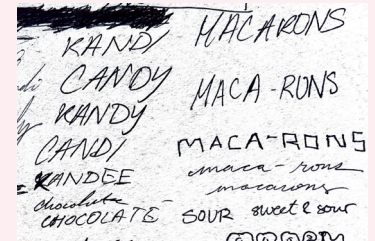 KANDI
CANDY
KANDY
CANDI
KANDEE
chocolate
CHOCOLATE
MACARONS
MACA-RONS
MACA-RONS
maca-rons
macarons
SOUR sweet & sour